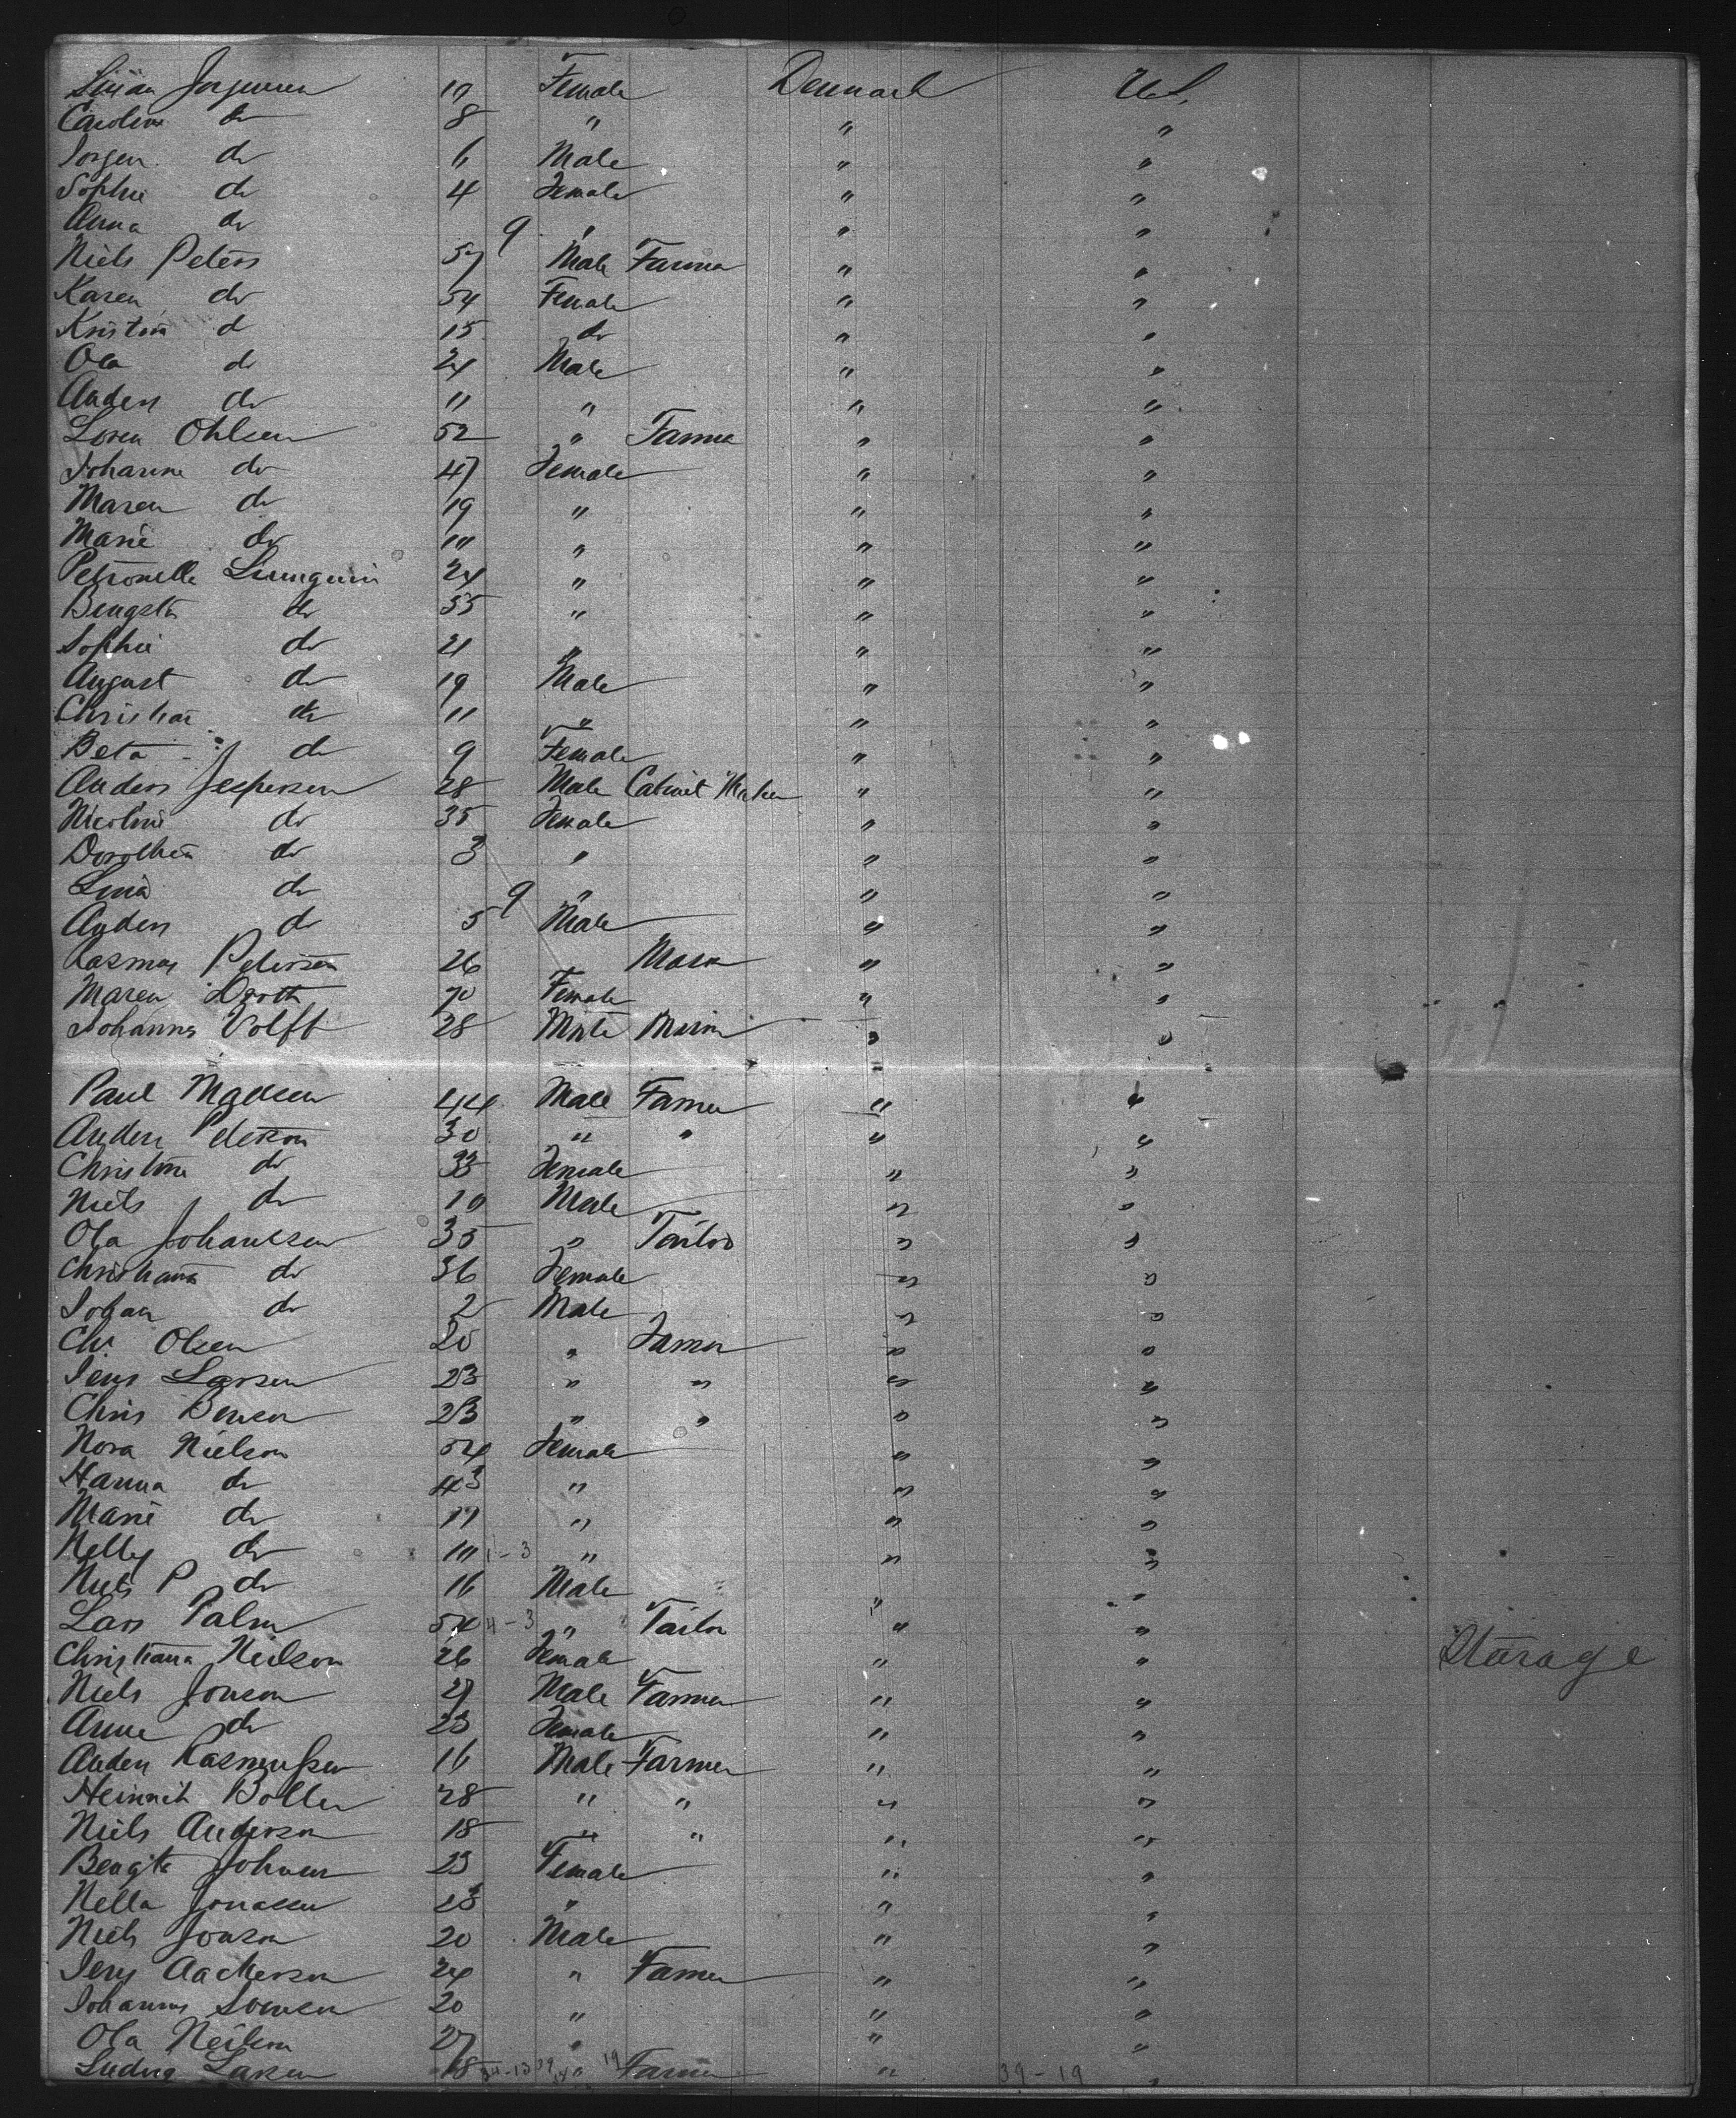 Jorgensen 10 Female Denmark U.S.
Caroline do 8 " " "
Jorgen do 6 Male " "
Sophie do 4 Female " "
Anna do 9 " " "
Niels Peters 57 Male Farmer " "
Karen do 54 Female " "
Kristin d 15 do " "
Ola do 24 Male " "
Anders do 11 " " "
Soren Ohlsen 52 " Farmer " "
Johanne do 47 Female " "
Maren do 19 " " "
Marie do 10 " " "
Petronella 24 " " "
Bengsta do 55 " " "
Sophie do 21 " " "
August do 19 Male " "
Christian do 11 " " "
Beta do 9 Female " "
Anders Jespersen 28 Male Cabinet Maker " "
Nicoline do 35 Female " "
Dorothea do 3 " " "
Lina do 9 " " "
Anders do 5 Male " "
Rasmus Petersen 26 Mason " "
Maren 70 Female " "
Johannes Volff 28 Male " "
Paul Madsen 44 Male Farmer " "
Anders Peterson 30 " " " "
Christine do 33 Female " "
Niels do 10 Male " "
Ola Johansen 35 " Tailor " "
Christiana do 36 Female " "
Johan do 2 Male " "
Chr. Olsen 20 " Farmer " "
Jens Larsen 23 " " " "
Chris Benson 23 " " " "
Nora Nielson 54 Female " "
Hanna do 43 " " "
Marie do 17 " " "
Nelly do 10 1-3 " " "
Niels P do 16 Male " "
Lars Palm 54 4-3 " Tailor " "
Christiana Neilson 26 Female " " Starage
Niels Jonson 27 Male Farmer " "
Anne do 23 Female " "
Anders Rasmussen 16 Male Farmer " "
Heinrich Boller 28 " " " "
Niels Anderson 18 " " " "
Bengta Johnsen 23 Female " "
Nella Jonassen 23 " " "
Niels Jonson 20 Male " "
Jens 24 " Farmer " "
Johannes 20 " " "
Ola Neilson 27 " " "
Ludvig Larsen 18 " 19 Farmer " 39-19 "